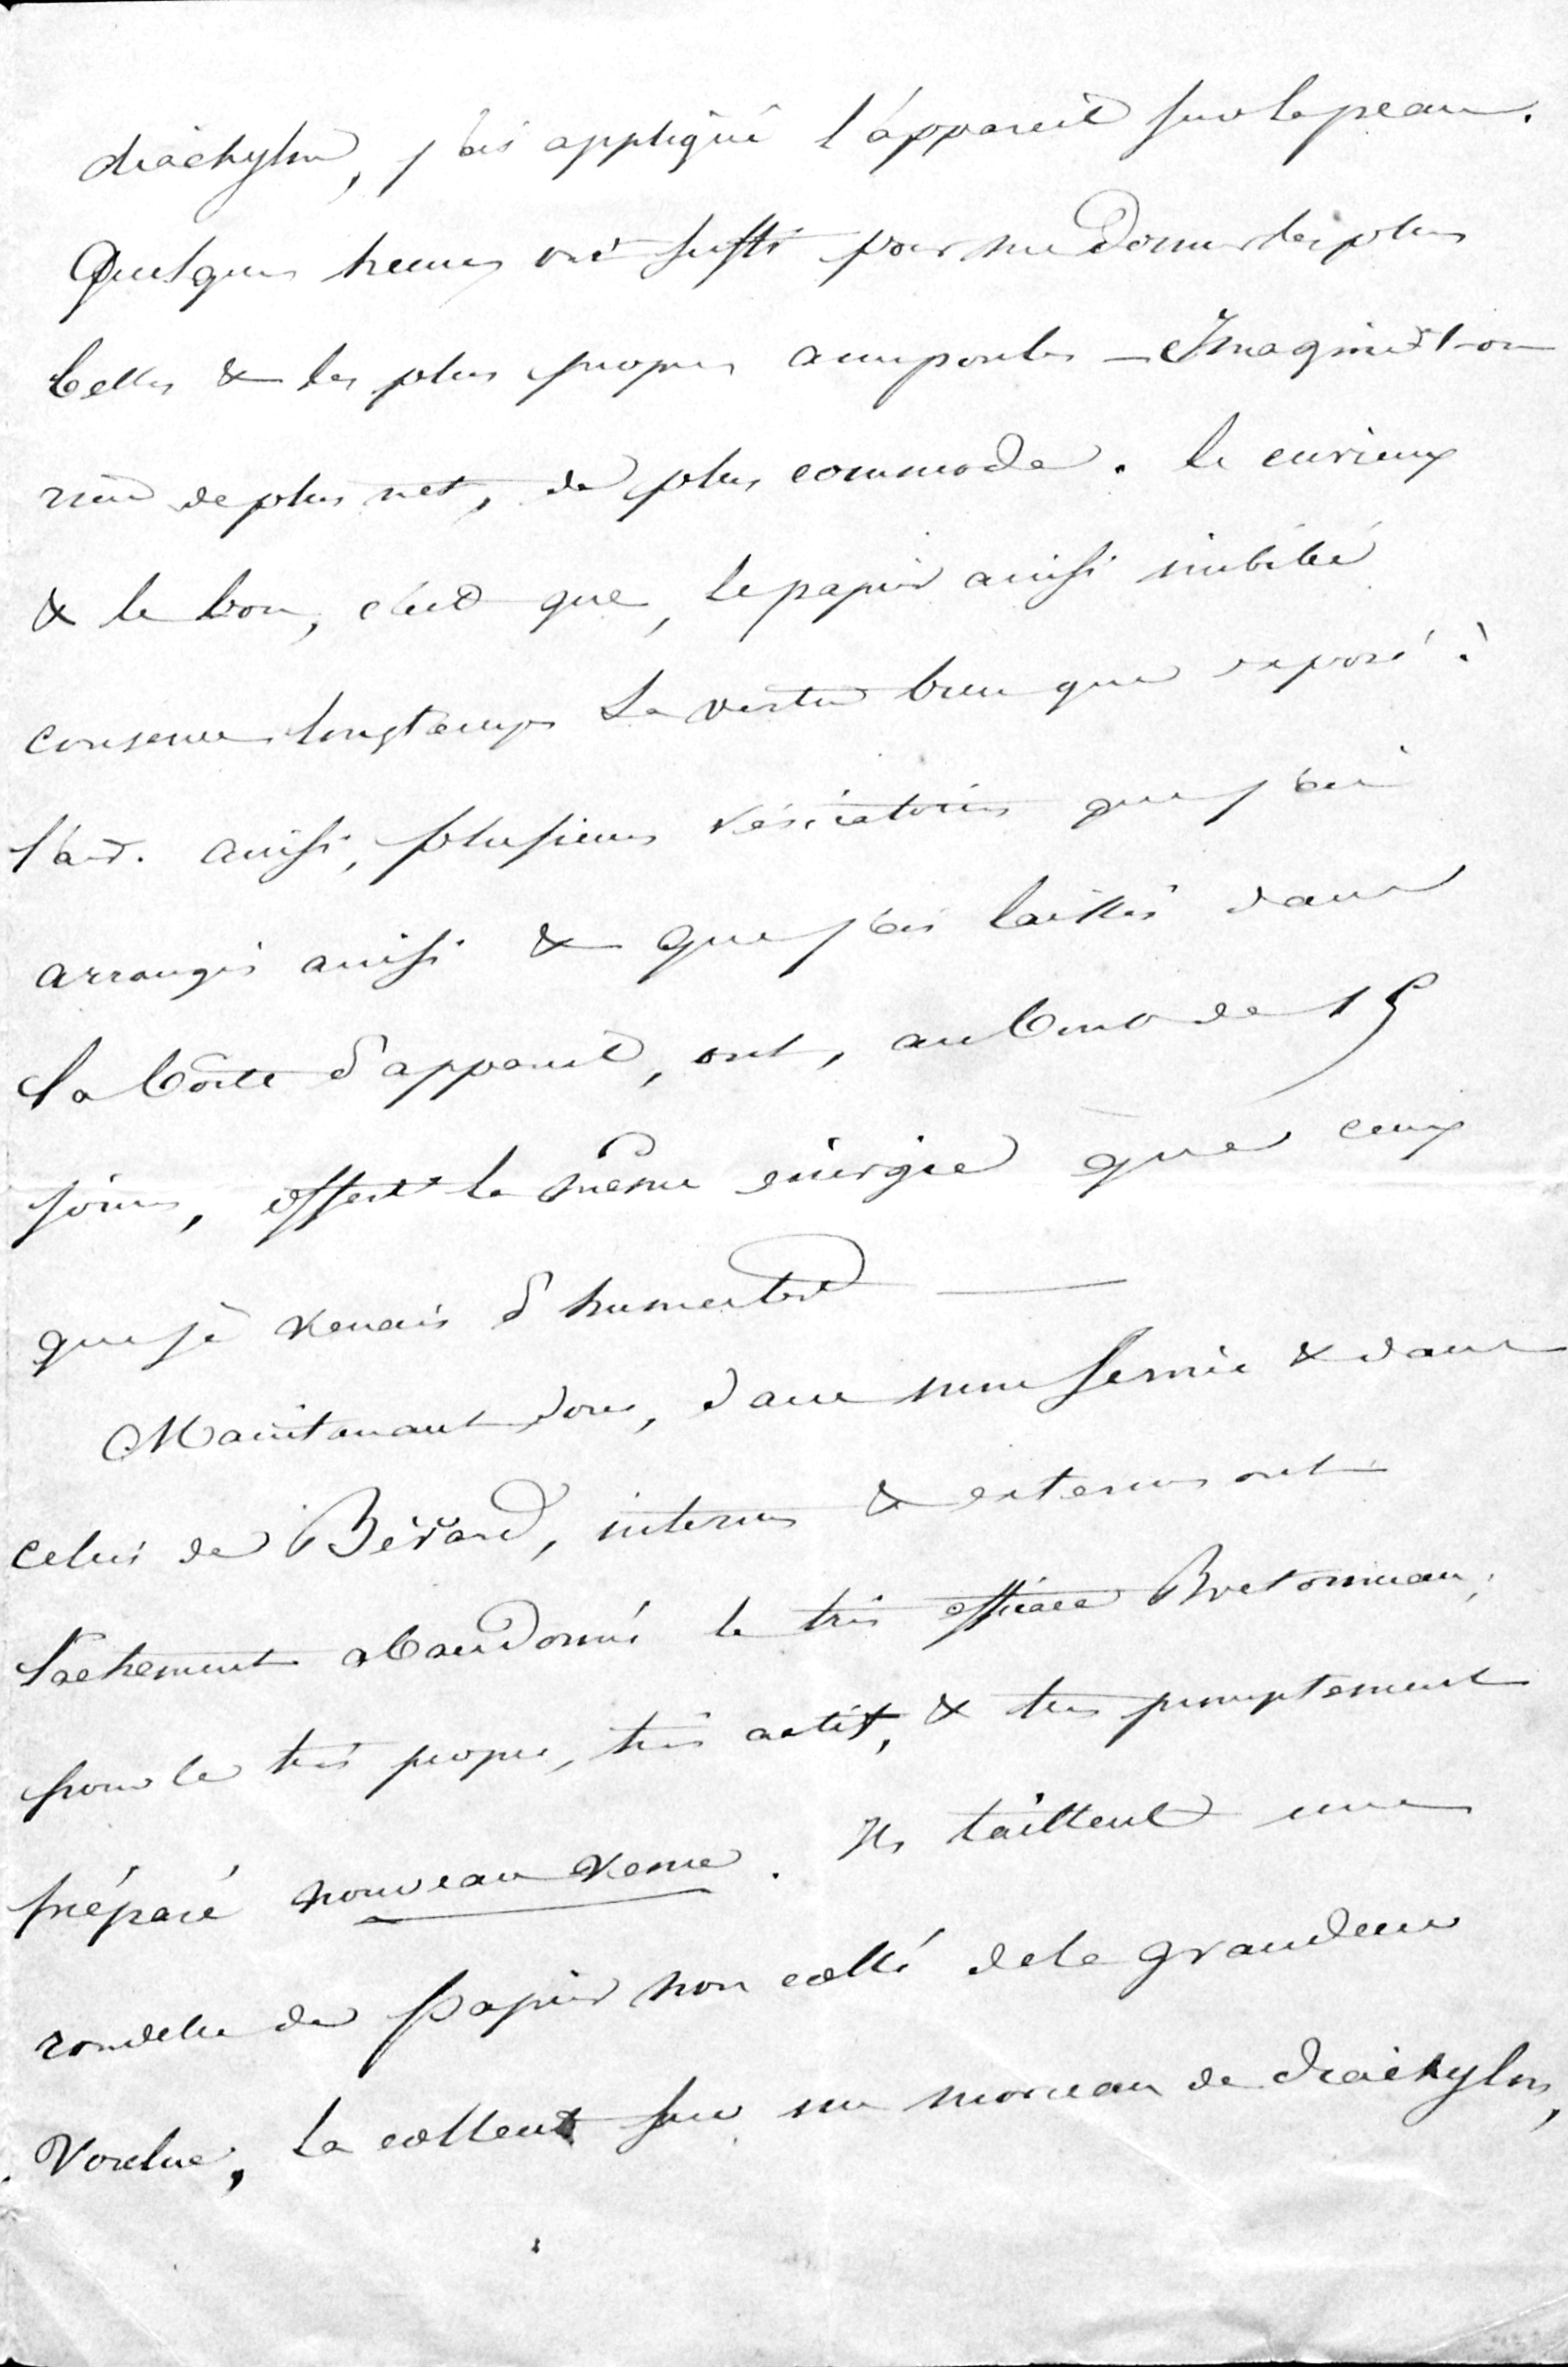 diachylon, j'ai appliqué l'appareil sur la peau.
Quelques heures ont suffi pour me donner les plus
belles & les plus propres ampoules — Imagine-t-on
rien de plus net, de plus commode. Le curieux
& le bon, c'est que, le papier ainsi imbibé
conserve longtemps sa vertu bien que exposé à
l'air. Ainsi, plusieurs vésicatoires que j'ai
arrangés ainsi & que j'ai laissés dans
la boîte d'appareil, ont, au bout de 15
jours, offert la même énergie que ceux
que je venais d'humecter —
Maintenant donc, dans mon service & dans
celui de Bérard, internes & externes ont
lâchement abandonné le très efficace Bretonneau,
pour le très propre, très actif, & très promptement
préparé nouveau venu. Ils taillent une
rondelle de papier non collé de la grandeur
voulue, la collent sur un morceau de diachylon,